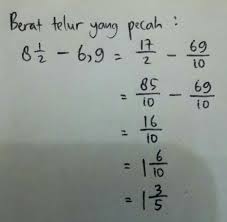 Berat telur yang pecah :
8 1/2 - 6,9 = 17/2 - 69/10
= 85/10 - 69/10
= 16/10
= 1 6/10
= 1 3/5